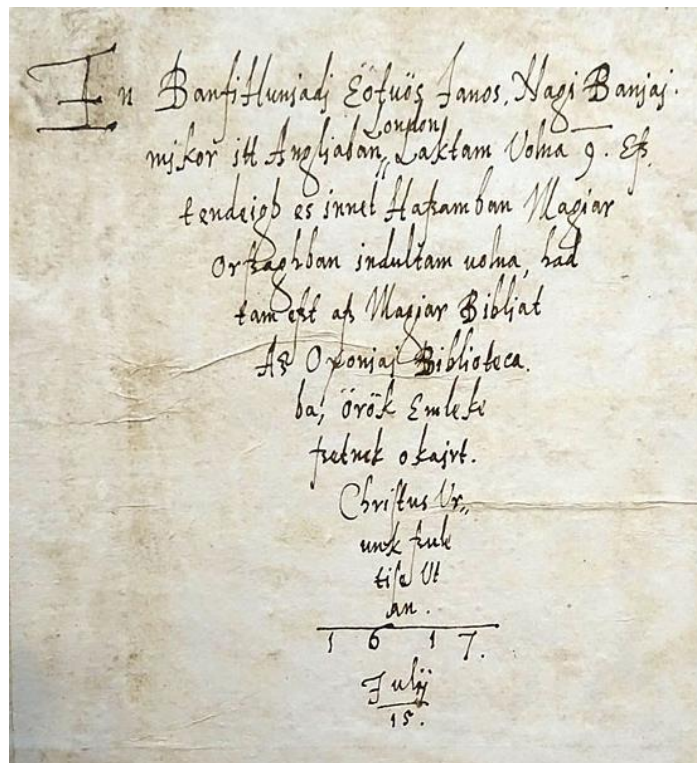 En Banfihunjadj Eötuös Janos, Nagi Banjaj.
London
mikor itt Angliaban,, Laktam Volna 9. Esz
tendeigh es innet Hazamban Magiar
Orszaghban indultam uolna, had
tam ezt az Magiar Bibliat
Az Oxoniaj Biblioteca.
ba, örök Emleke
zetnek okajrt.
Christus Vr,,
unk szule
tise Vt
an.
1 6 1 7.
Julij
15.